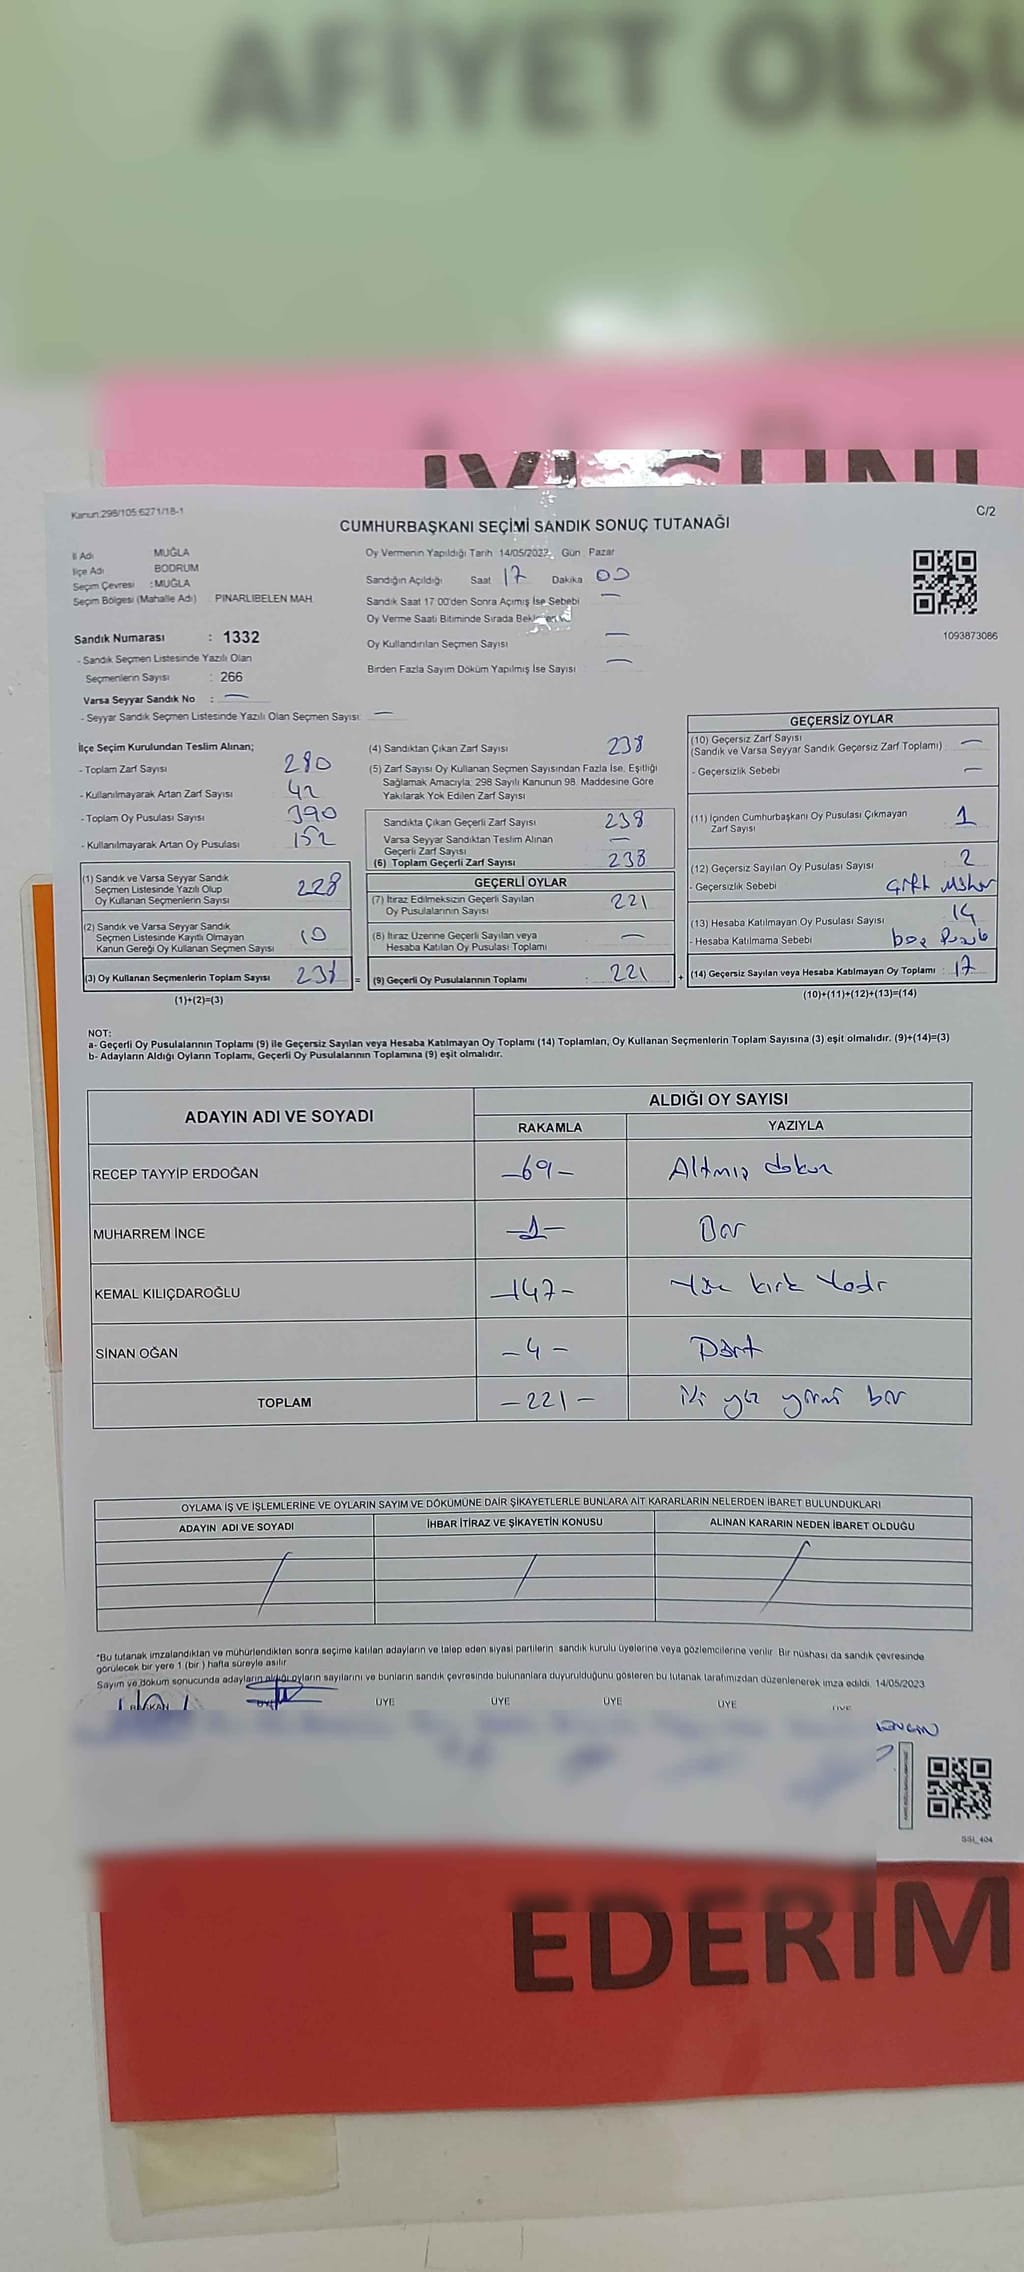 AFİYET OLSU
İYİ GÜNL
Kanun:298/105;6271/18-1
C/2
CUMHURBAŞKANI SEÇİMİ SANDIK SONUÇ TUTANAĞI
İl Adı MUĞLA
İlçe Adı BODRUM
Seçim Çevresi : MUĞLA
Seçim Bölgesi (Mahalle Adı) PINARLIBELEN MAH.
Oy Vermenin Yapıldığı Tarih 14/05/2023 Gün Pazar
Sandığın Açıldığı Saat 17 Dakika 00
Sandık Saat 17:00'den Sonra Açılmış İse Sebebi —
Oy Verme Saati Bitiminde Sırada
Oy Kullandırılan Seçmen Sayısı —
Birden Fazla Sayım Döküm Yapılmış İse Sayısı —
1093873086
Sandık Numarası : 1332
- Sandık Seçmen Listesinde Yazılı Olan
Seçmenlerin Sayısı : 266
Varsa Seyyar Sandık No : —
- Seyyar Sandık Seçmen Listesinde Yazılı Olan Seçmen Sayısı: —
İlçe Seçim Kurulundan Teslim Alınan;
- Toplam Zarf Sayısı 280
- Kullanılmayarak Artan Zarf Sayısı 42
- Toplam Oy Pusulası Sayısı 390
- Kullanılmayarak Artan Oy Pusulası 152
(1) Sandık ve Varsa Seyyar Sandık
Seçmen Listesinde Yazılı Olup
Oy Kullanan Seçmenlerin Sayısı 228
(2) Sandık ve Varsa Seyyar Sandık
Seçmen Listesinde Kayıtlı Olmayan
Kanun Gereği Oy Kullanan Seçmen Sayısı 10
(3) Oy Kullanan Seçmenlerin Toplam Sayısı 238 =
(1)+(2)=(3)
(4) Sandıktan Çıkan Zarf Sayısı 238
(5) Zarf Sayısı Oy Kullanan Seçmen Sayısından Fazla İse, Eşitliği
Sağlamak Amacıyla; 298 Sayılı Kanunun 98. Maddesine Göre
Yakılarak Yok Edilen Zarf Sayısı
Sandıkta Çıkan Geçerli Zarf Sayısı 238
Varsa Seyyar Sandıktan Teslim Alınan
Geçerli Zarf Sayısı —
(6) Toplam Geçerli Zarf Sayısı 238
GEÇERLİ OYLAR
(7) İtiraz Edilmeksizin Geçerli Sayılan
Oy Pusulalarının Sayısı 221
(8) İtiraz Üzerine Geçerli Sayılan veya
Hesaba Katılan Oy Pusulası Toplamı —
(9) Geçerli Oy Pusulalarının Toplamı : 221 +
GEÇERSİZ OYLAR
(10) Geçersiz Zarf Sayısı
(Sandık ve Varsa Seyyar Sandık Geçersiz Zarf Toplamı) —
- Geçersizlik Sebebi —
(11) İçinden Cumhurbaşkanı Oy Pusulası Çıkmayan
Zarf Sayısı 1
(12) Geçersiz Sayılan Oy Pusulası Sayısı : 2
- Geçersizlik Sebebi Çift Mühür
(13) Hesaba Katılmayan Oy Pusulası Sayısı 14
- Hesaba Katılmama Sebebi boş Pusula
(14) Geçersiz Sayılan veya Hesaba Katılmayan Oy Toplamı : 17
(10)+(11)+(12)+(13)=(14)
NOT:
a- Geçerli Oy Pusulalarının Toplamı (9) ile Geçersiz Sayılan veya Hesaba Katılmayan Oy Toplamı (14) Toplamları, Oy Kullanan Seçmenlerin Toplam Sayısına (3) eşit olmalıdır. (9)+(14)=(3)
b- Adayların Aldığı Oyların Toplamı, Geçerli Oy Pusulalarının Toplamına (9) eşit olmalıdır.
ADAYIN ADI VE SOYADI
ALDIĞI OY SAYISI
RAKAMLA YAZIYLA
RECEP TAYYİP ERDOĞAN -69- Altmış dokuz
MUHARREM İNCE -1- Bir
KEMAL KILIÇDAROĞLU -147- Yüz kırk Yedi
SİNAN OĞAN -4- Dört
TOPLAM -221- iki yüz yirmi bir
OYLAMA İŞ VE İŞLEMLERİNE VE OYLARIN SAYIM VE DÖKÜMÜNE DAİR ŞİKAYETLERLE BUNLARA AİT KARARLARIN NELERDEN İBARET BULUNDUKLARI
ADAYIN ADI VE SOYADI İHBAR İTİRAZ VE ŞİKAYETİN KONUSU ALINAN KARARIN NEDEN İBARET OLDUĞU
*Bu tutanak imzalandıktan ve mühürlendikten sonra seçime katılan adayların ve talep eden siyasi partilerin sandık kurulu üyelerine veya gözlemcilerine verilir. Bir nüshası da sandık çevresinde
görülecek bir yere 1 (bir) hafta süreyle asılır.
Sayım ve döküm sonucunda adayların aldığı oyların sayılarını ve bunların sandık çevresinde bulunanlara duyurulduğunu gösteren bu tutanak tarafımızdan düzenlenerek imza edildi. 14/05/2023
BAŞKAN ÜYE ÜYE ÜYE ÜYE ÜYE ÜYE
SSI_404
EDERİM